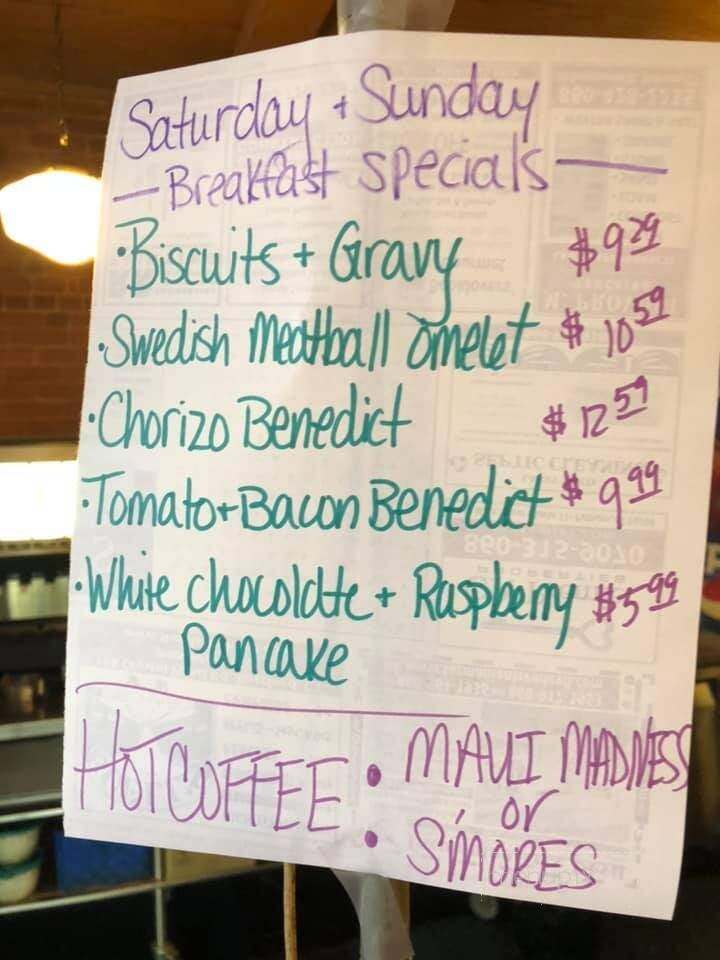 Saturday + Sunday
— Breakfast specials —
• Biscuits + Gravy $9.29
• Swedish Meatball omelet $10.59
• Chorizo Benedict $12.59
• Tomato + Bacon Benedict $9.99
• White chocolate + Raspberry $5.99
Pancake
HOT COFFEE • MAUI MADNESS
or
• S'MORES